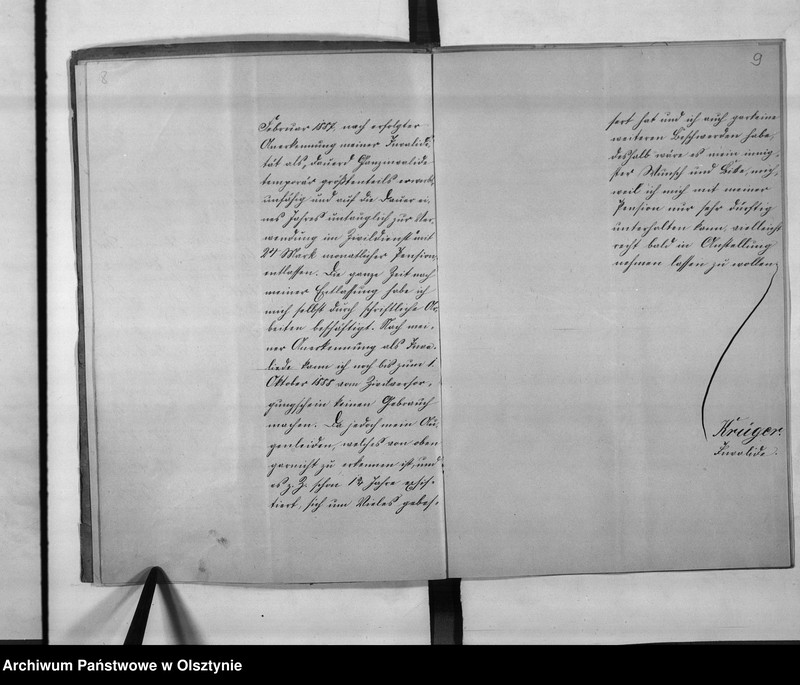 8
Februar 1887, nach erfolgter
Anerkennung meiner Invalidi,
tät als, dauernd Ganzinvalide
temporär größtenteils erwerbs,
unfähig und auf die Dauer ei,
nes Jahres untauglich zur Ver,
wendung im Zivildienst mit
24 Mark monatlicher Pension
entlassen. Die ganze Zeit nach
meiner Entlassung habe ich
mich selbst durch schriftliche Ar,
beiten beschäftigt. Nach mei,
ner Anerkennung als Inva,
liede kann ich noch bis zum 1.
Oktober 1888 vom Zivilversor,
gungsschein keinen Gebrauch
machen. Da jedoch mein Au,
genleiden, welches von oben
garnicht zu erkennen ist, und
es z. Z. schon 1½ Jahre exsis,
tiert, sich um Vieles gebes,
9
sert hat und ich auch garkeine
weiteren Beschwerden habe,
deshalb wäre es mein innig,
ster Wunsch und Bitte, mich,
weil ich mich mit meiner
Pension nur sehr dürftig
unterhalten kann, vielleicht
recht bald in Anstellung
nehmen lassen zu wollen.
Krüger.
Invalide.
Archiwum Państwowe w Olsztynie